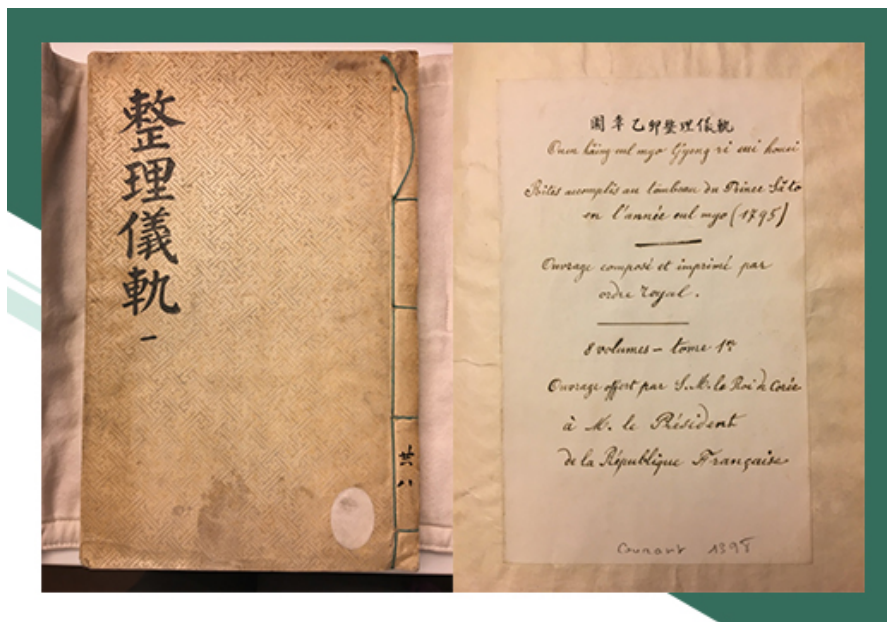 整理儀軌
一
共八
園幸乙卯整理儀軌
Ouen häing eul myo tjyeng ri eui kouei
Rites accomplis au tombeau du Prince Să to
en l'année eul myo (1795)
Ouvrage composé et imprimé par
ordre royal.
8 volumes - tome 1er
Ouvrage offert par S. M. le Roi de Corée
à M. le Président
de la République Française
Courant 1398